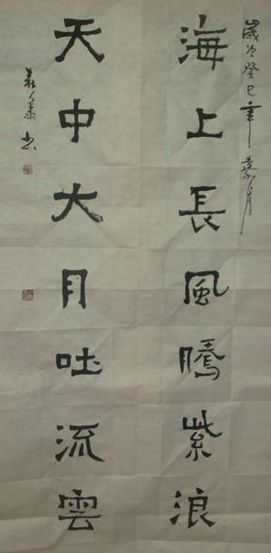 歲次癸巳年
海上長風騰紫浪
天中大月吐流雲